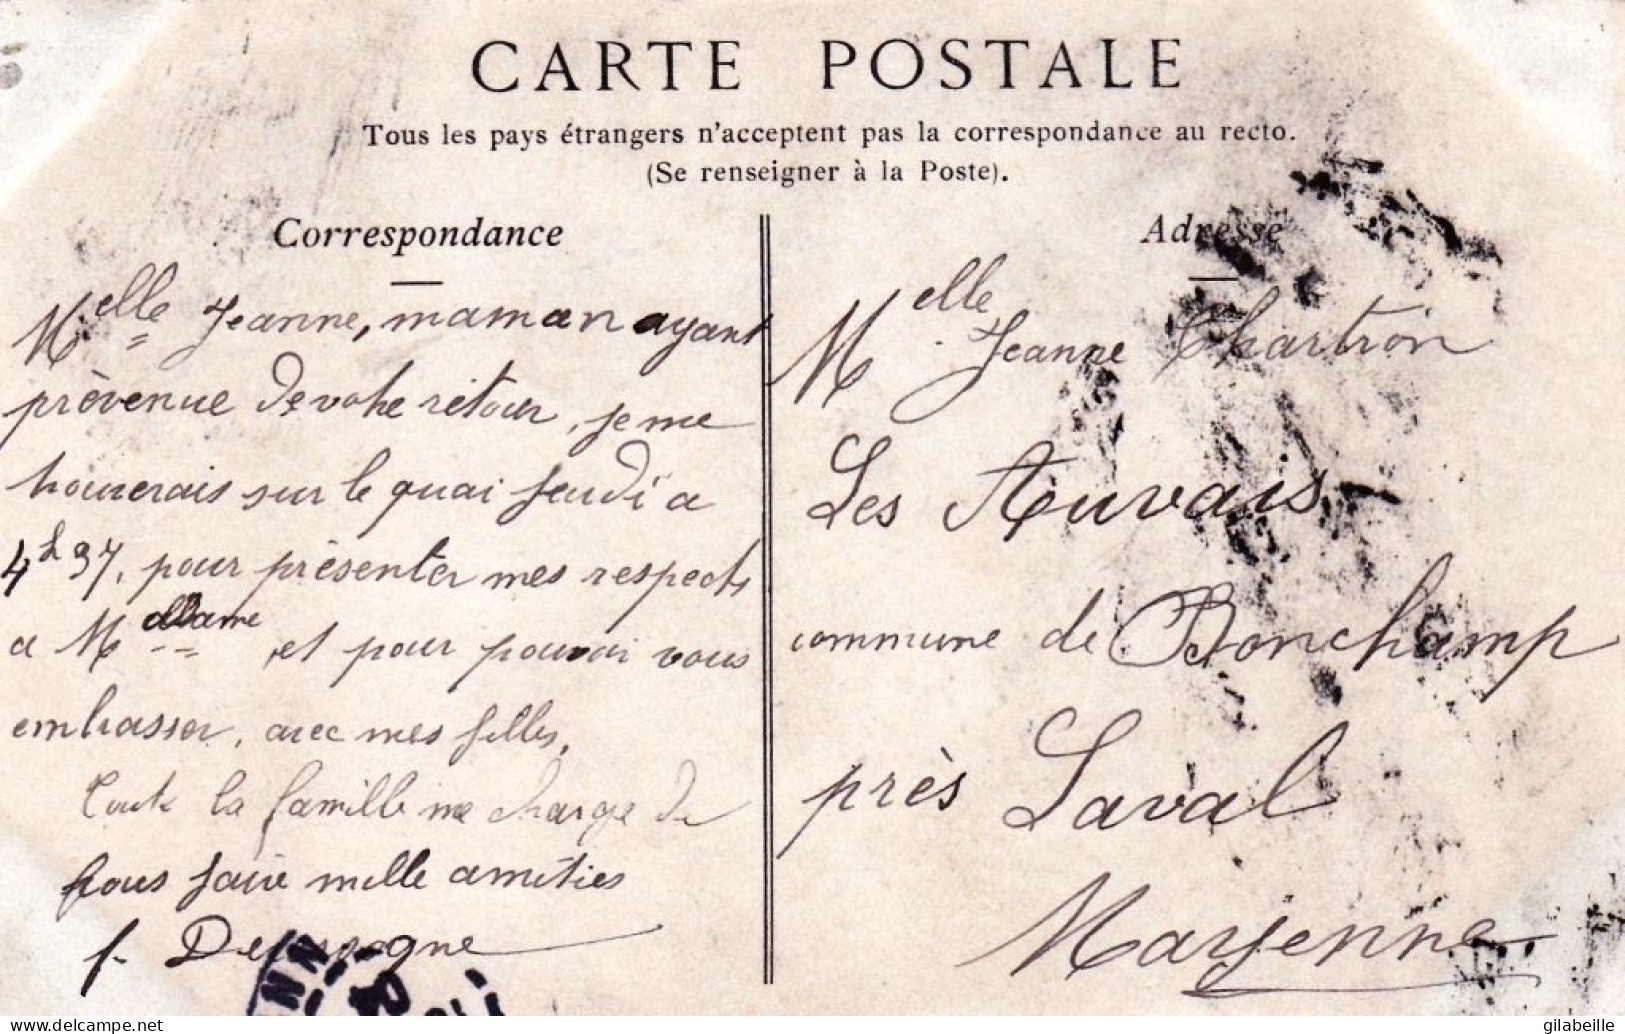 CARTE POSTALE
Tous les pays étrangers n'acceptent pas la correspondance au recto.
(Se renseigner à la Poste).
Correspondance
Melle Jeanne, maman ayant
prèvenue de votre retour, je me
trouverais sur le quai jeudi a
4h37, pour présenter mes respects
a Madame, et pour pouvoir vous
embrasser, avec mes filles,
Toute la famille me charge de
vous faire mille amitiés
Adresse
Melle Jeanne Chartron
Les
commune de Bonchamp
près Laval
Mayenne
gilabeille